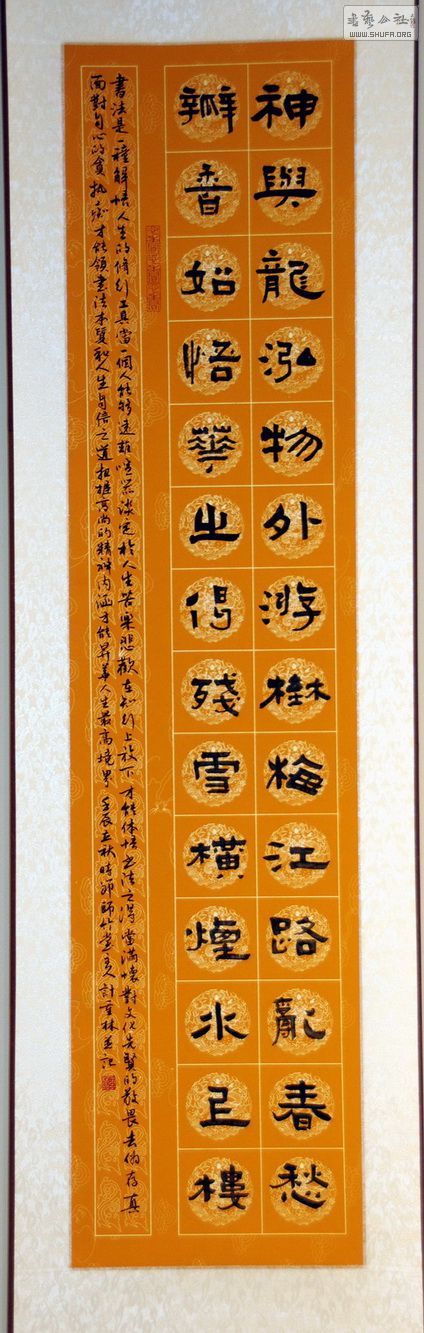 書藝公社
WWW.SHUFA.ORG
神與龍泓物外游樹梅江路亂春愁
瓣香始悟華之偈殘雪橫煙水樓
書法是一種解悟人生的脩行工具當一個人能够遠離喧囂淡定於人生苦樂悲歡在知行上放下才能体悟書法之得當滿懷對文化先賢的敬畏去偽存真
面對自心的貪执痴才能領書法本質和人生自悟之道高尚的精神内涵才能昇華人生最高境界壬辰立秋時節師竹堂主人計林並記